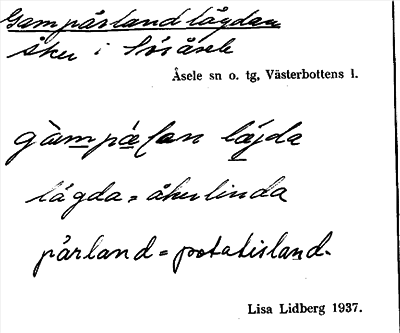 Gampärlandlägdan
åker i Söråsele
Åsele sn o. tg, Västerbottens l.
gàmpä̀ḷan lä́jda
lägda = åkerlinda
pärland = potatisland.
Lisa Lidberg 1937.